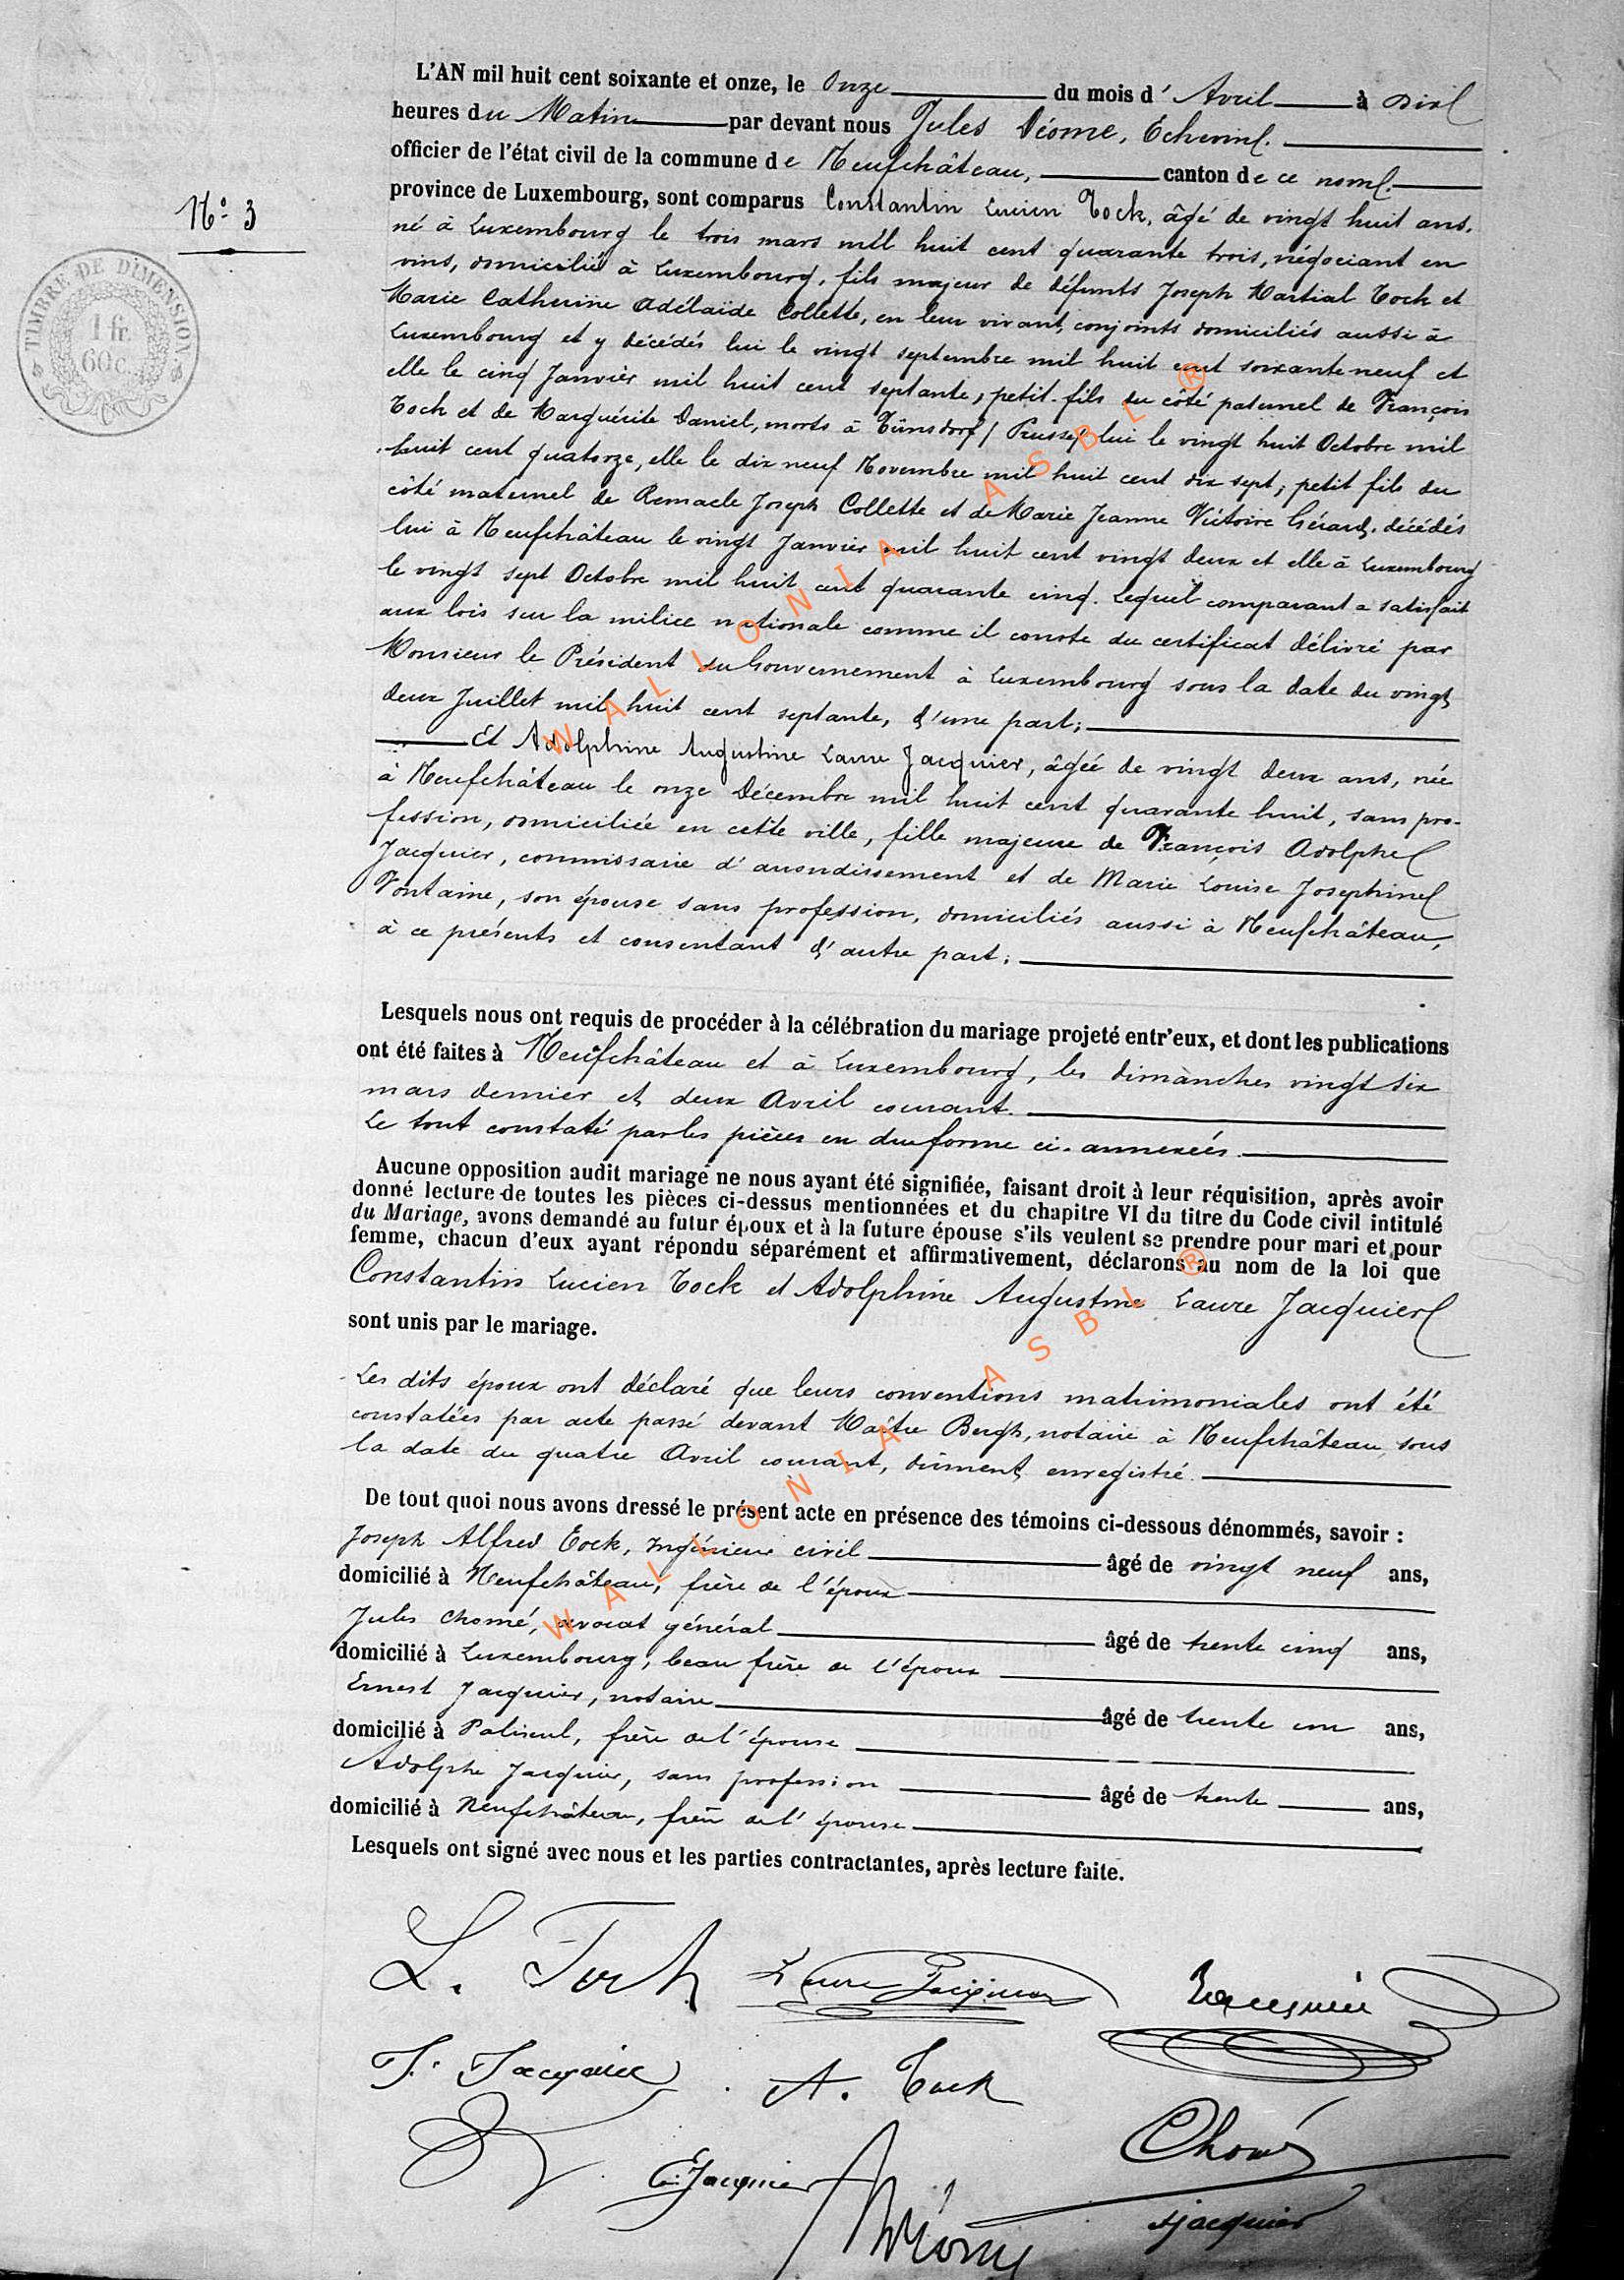 L'AN mil huit cent soixante et onze, le Onze du mois d' Avril à dix
heures du Matin par devant nous Jules Déome, Echevin.
officier de l'état civil de la commune de Neufchâteau, canton de ce nom.
province de Luxembourg, sont comparus Constantin Lucien Tock, âgé de vingt huit ans,
N° 3
né à Luxembourg le trois mars mil huit cent quarante trois, négociant en
vins, domicilié à Luxembourg, fils majeur de défunts Joseph Martial Tock et
Marie Catherine Adélaïde Collette, en leur vivant, conjoints domiciliés aussi à
Luxembourg et y décédés lui le vingt septembre mil huit cent soixante neuf et
elle le cinq Janvier mil huit cent septante, petit-fils du côté paternel de François
Tock et de Marguérite Daniel, morts à Tünsdorf (Prusse) lui le vingt huit Octobre mil
huit cent quatorze, elle le dix neuf Novembre mil huit cent dix sept; petit fils du
côté maternel de Remacle Joseph Collette et de Marie Jeanne Victoire Gérard, décédés
lui à Neufchâteau le vingt Janvier mil huit cent vingt deux et elle à Luxembourg
le vingt sept Octobre mil huit cent quarante cinq. Lequel comparant a satisfait
aux lois sur la milice nationale comme il conste du certificat délivré par
Monsieur le Président du Gouvernement à Luxembourg sous la date du vingt
deux Juillet mil huit cent septante, d'une part;
Et Adolphine Augustine Laure Jacquier, âgée de vingt deux ans, née
à Neufchâteau le onze Décembre mil huit cent quarante huit, sans pro-
fession, domiciliée en cette ville, fille majeure de François Adolphe
Jacquier, commissaire d'arrondissement et de Marie Louise Josephine
Fontaine, son épouse sans profession, domiciliés aussi à Neufchâteau,
à ce présents et consentant d'autre part;
Lesquels nous ont requis de procéder à la célébration du mariage projeté entr'eux, et dont les publications
ont été faites à Neufchâteau et à Luxembourg, les dimanches vingt six
mars dernier et deux Avril courant.
Le tout constaté par les pièces en due forme ci-annexées.
Aucune opposition audit mariage ne nous ayant été signifiée, faisant droit à leur réquisition, après avoir
donné lecture de toutes les pièces ci-dessus mentionnées et du chapitre VI du titre du Code civil intitulé
du Mariage, avons demandé au futur époux et à la future épouse s'ils veulent se prendre pour mari et pour
femme, chacun d'eux ayant répondu séparément et affirmativement, déclarons au nom de la loi que
Constantin Lucien Tock et Adolphine Augustine Laure Jacquier
sont unis par le mariage.
Les dits époux ont déclaré que leurs conventions matrimoniales ont été
constatées par acte passé devant Maître Bergh, notaire à Neufchâteau, sous
la date du quatre Avril courant, dûment enregistré.
De tout quoi nous avons dressé le présent acte en présence des témoins ci-dessous dénommés, savoir :
Joseph Alfred Tock, Ingénieur civil âgé de vingt neuf ans,
domicilié à Neufchâteau, frère de l'époux
Jules Chomé, avocat général âgé de trente cinq ans,
domicilié à Luxembourg, beau frère de l'époux
Ernest Jacquier, notaire âgé de trente un ans,
domicilié à Paliseul, frère de l'épouse
Adolphe Jacquier, sans profession âgé de trente ans,
domicilié à Neufchâteau, frère de l'épouse
Lesquels ont signé avec nous et les parties contractantes, après lecture faite.
L. Tock Laure Jacquier Jacquier
J. Jacquier A. Tock
Chomé
E. Jacquier
Déome
A Jacquier
TIMBRE DE DIMENSION
1 fr.
60 c.
WALLONIA ASBL ®
WALLONIA ASBL ®